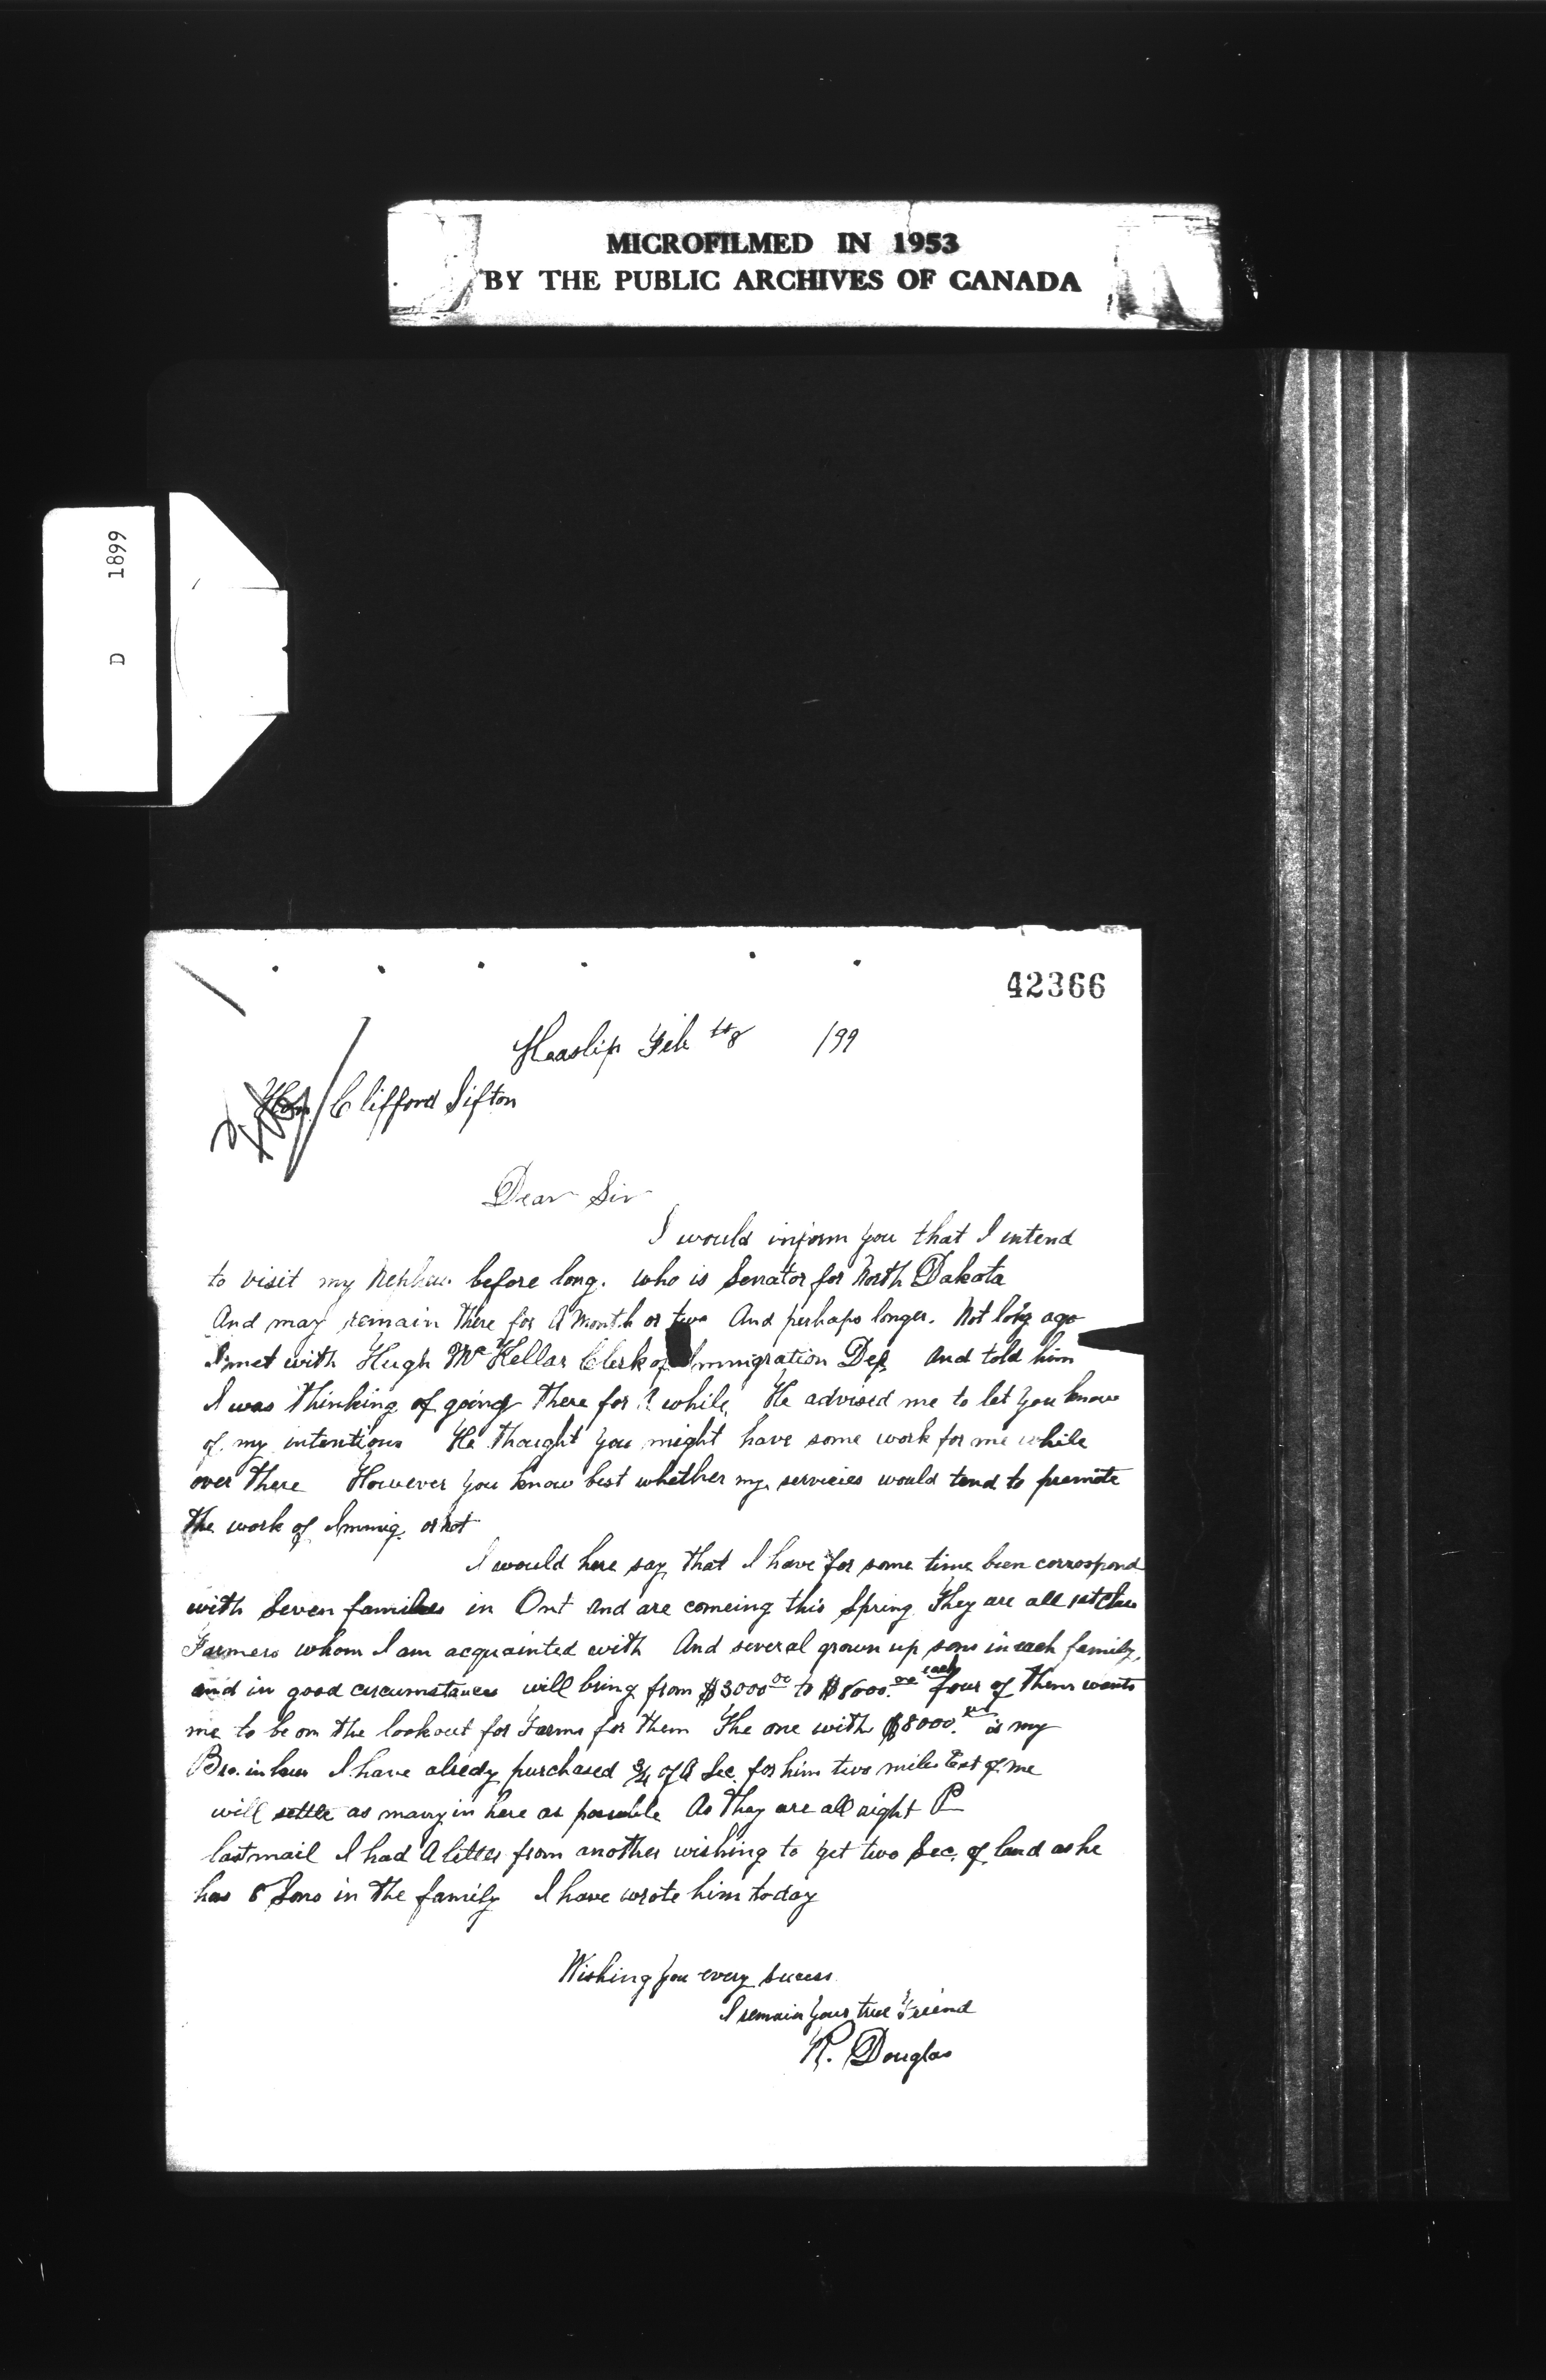 MICROFILMED IN 1953
BY THE PUBLIC ARCHIVES OF CANADA
D 1899
42366
Heaslip Feb 8th /99
Hon. Clifford Sifton
Dear Sir
I would inform you that I intend
to visit my Nephew before long. who is Senator for North Dakota
And may remain there for A Month or two And perhaps longer. Not long ago
I met with Hugh McKellar Clerk of Immigration Dep. And told him
I was thinking of going there for A while, He advised me to let you know
of my intentions He thought you might have some work for me while
over there However you know best whether my servicies would tend to premote
the work of Immig. or not
I would here say that I have for some time been correspond
with Seven families in Ont And are comeing this Spring They are all
Farmers whom I am acquainted with And several grown up sons in each family,
and in good circumstances will bring from $3000.00 to $8000.00 each four of them wants
me to be on the lookout for Farms for them The one with $8000. is my
Bro. in law I have alredy purchased 3/4 of A Sec. for him two miles East of me
will settle as many in here as possible As they are all right
last mail I had A letter from another wishing to get two Sec. of land as he
has Sons in the family I have wrote him today
Wishing you every Sucess
I remain your true Friend
R. Douglas